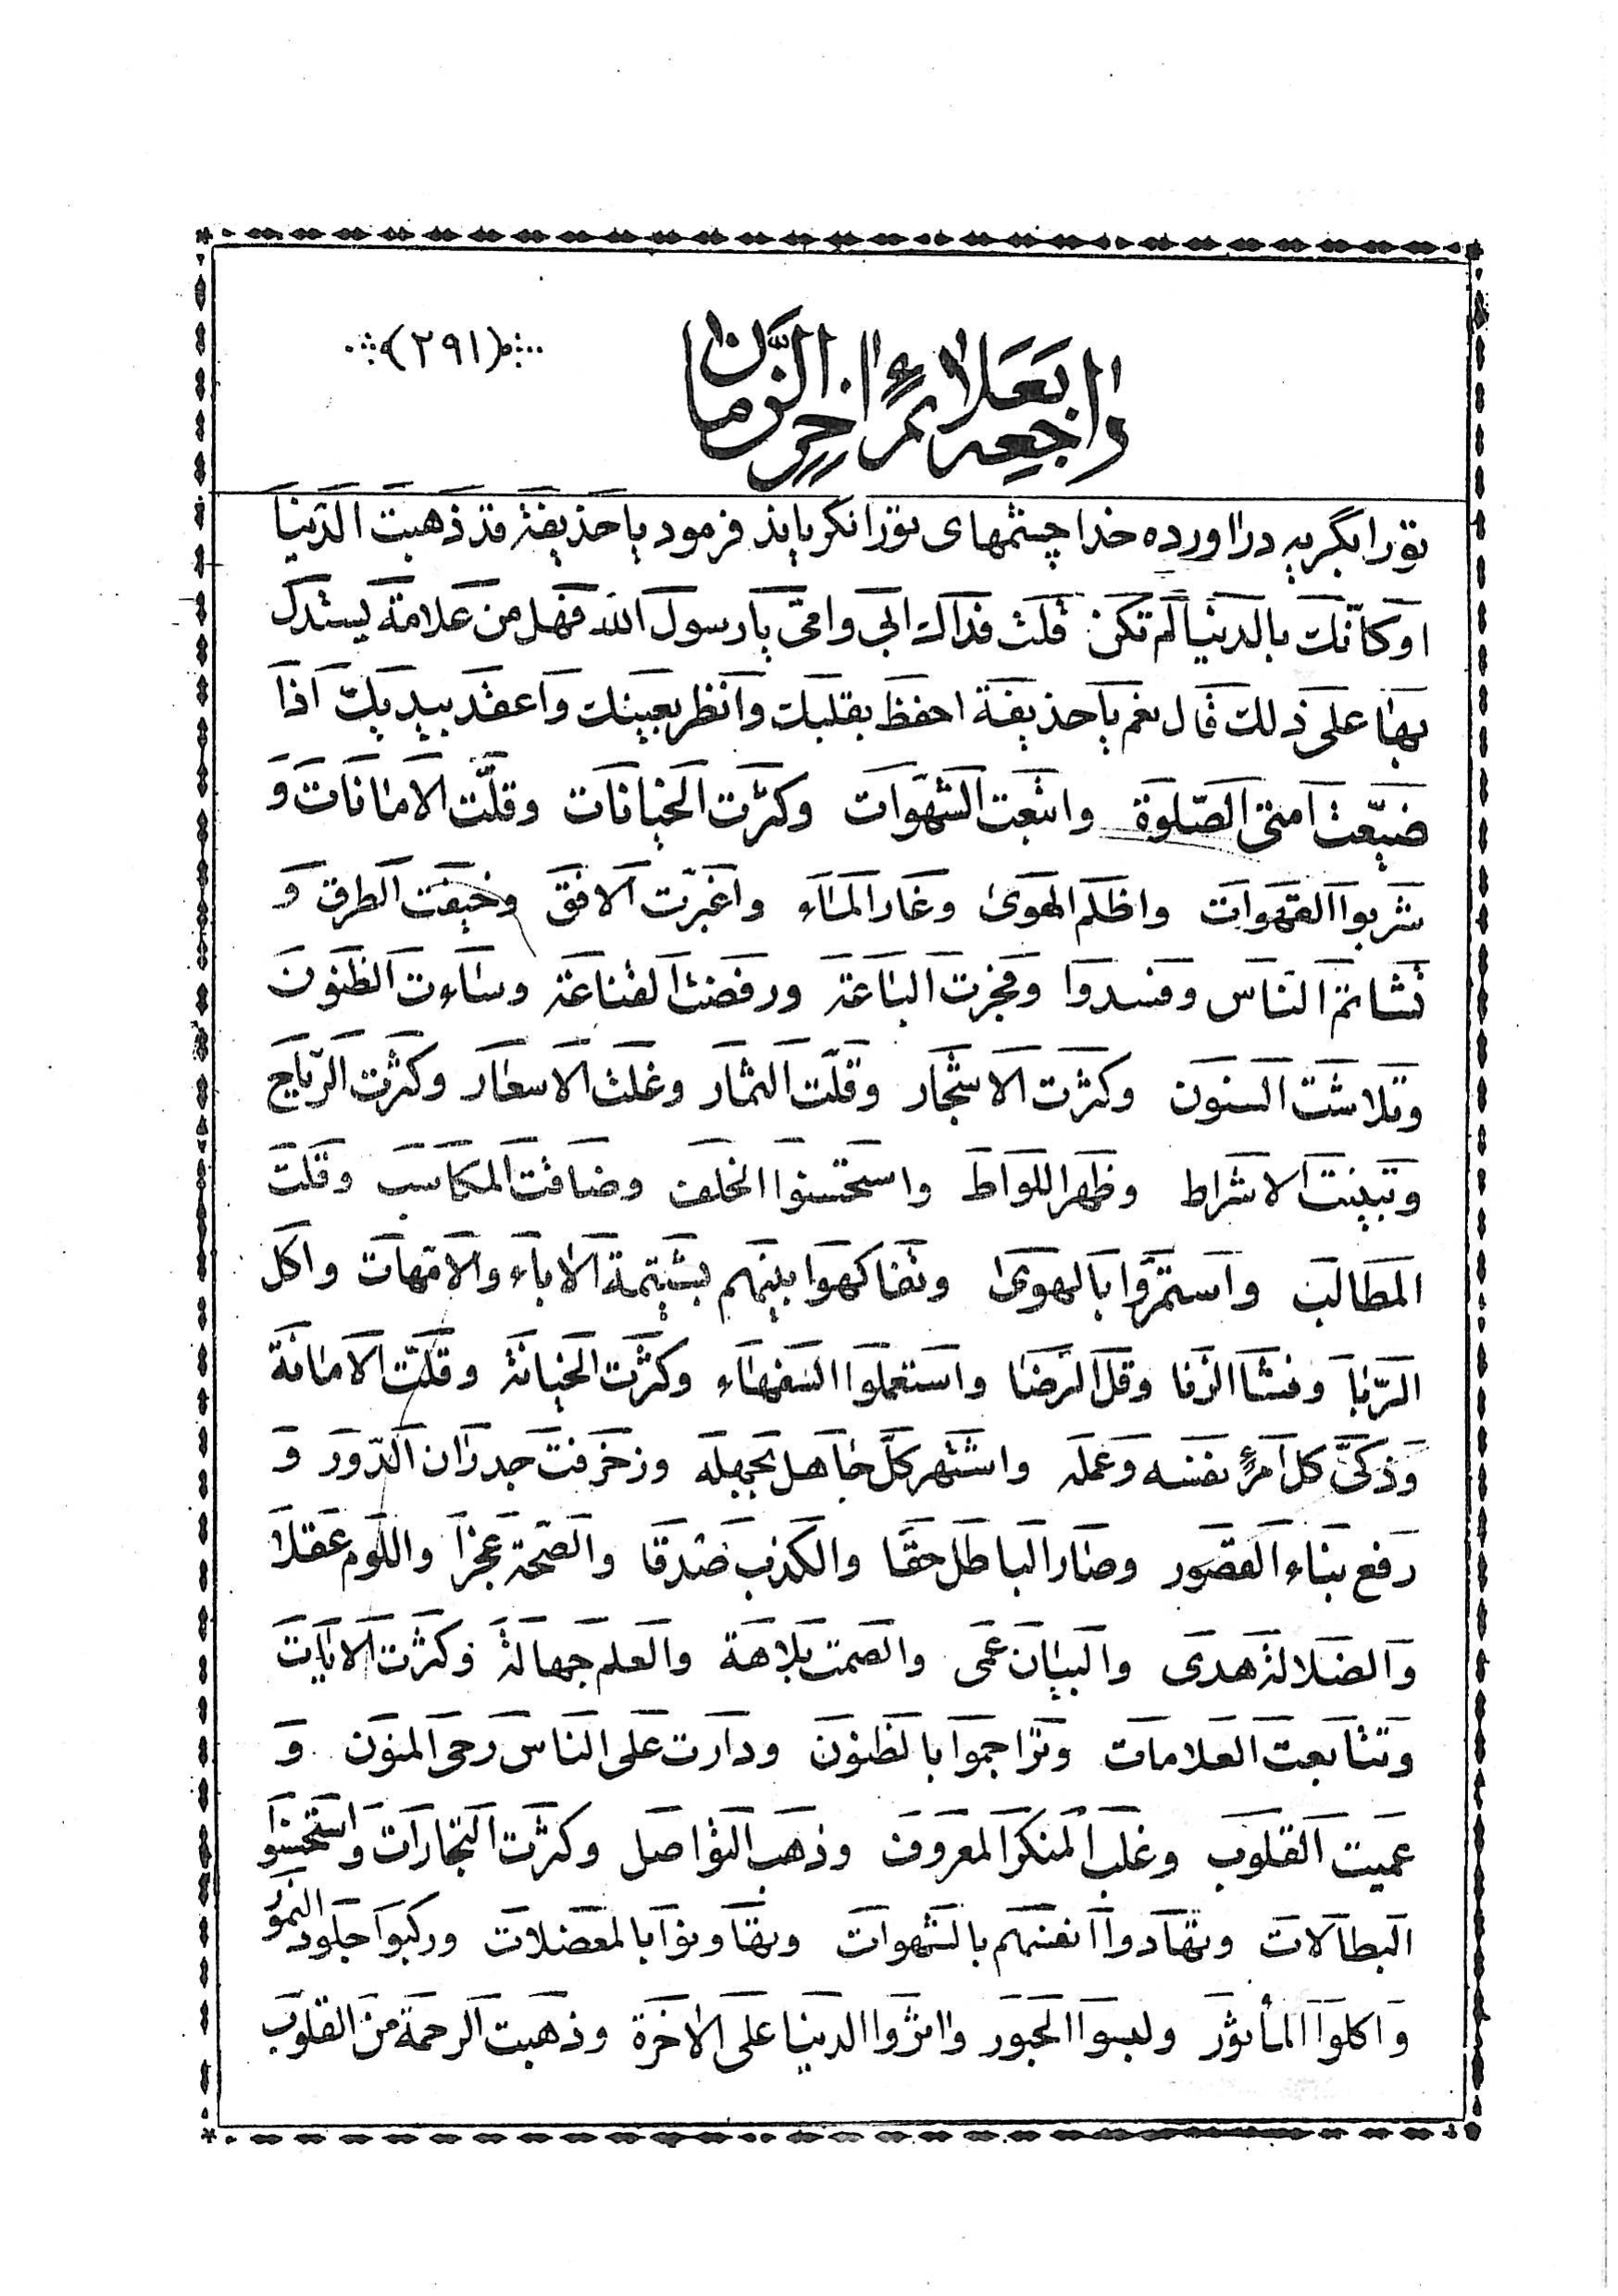 راجعه بعلائم اخر الزمان
(۲۹۱)
تو را بگریه در اورده خدا چشمهای تو را نگریاند فرمود یا حذیفة قد ذهبت الدّنیا
او کانّك بالدنیا لم تکن قلت فداك ابی و امّی یا رسول الله فهل من علامة یستدل
بها علی ذلك قال نعم یا حذیفة احفظ بقلبك وانظر بعینك واعقد بیدیك اذا
ضیّعت امتی الصّلوة واتبعت الشهوات وکثرت الخیانات وقلّت الامانات و
شربوا القهوات واظلم الهوی وغار الماء واغبرّت الافق وخیفت الطرق و
تشاتم الناس وفسدوا وفجرت الباعة ورفضت القناعة وساءت الظنون
وتلاشت السنون وکثرت الاشجار وقلّت الثمار وغلت الاسعار وکثرت الریاح
وتبینت الاشراط وظهر اللواط واستحسنوا الخلف وضاقت المکاسب وقلّت
المطالب واستمرّوا بالهوی وتفاکهوا بینهم بشتیمة الاباء والامّهات واکل
الرّبا وفشا الزنا وقلّ الرضا واستعملوا السفهاء وکثرت الخیانة وقلّت الامانة
وزکیّ کل امرءٍ نفسه وعمله واشتهر کلّ جاهل بجهله وزخرفت جدران الدّور و
رفع بناء القصور وصار الباطل حقّا والکذب صدقا والصّحة عجزا واللّوم عقلا
والضلالة هدی والبیان عمی والصمت بلاهة والعلم جهالة وکثرت الایات
وتتابعت العلامات وتراجموا بالظنون ودارت علی الناس رحی المنون و
عمیت القلوب وغلب المنکر المعروف وذهب التواصل وکثرت التجارات واستحسنوا
البطالات وتهادوا انفسهم بالشهوات وتهاونوا بالمعضلات ورکبوا جلود النمور
واکلوا المأثور ولبسوا الحبور واثروا الدنیا علی الاخرة وذهبت الرحمة من القلوب